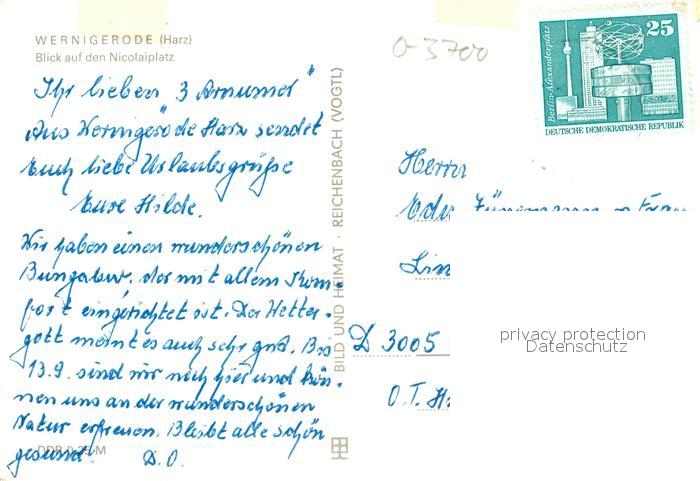 WERNIGERODE (Harz)
Blick auf den Nicolaiplatz
Ihr lieben 3
Aus Wernigerode Harz sendet
Euch liebe Urlaubsgrüße
Eure Hilde.
Wir haben einen wunderschönen
Bungalow, der mit allem Kom-
fort eingerichtet ist. Der Wetter-
gott meint es auch sehr gut. Bis
13.9. sind wir noch hier und kön-
nen uns an der wunderschönen
Natur erfreuen. Bleibt alle schön
gesund D.O.
DDR 0,25 M
BILD UND HEIMAT · REICHENBACH (VOGTL)
0-3700
Berlin-Alexanderplatz
25
DEUTSCHE DEMOKRATISCHE REPUBLIK
Herrn
Lin
D 3005
O.T. H
privacy protection
Datenschutz